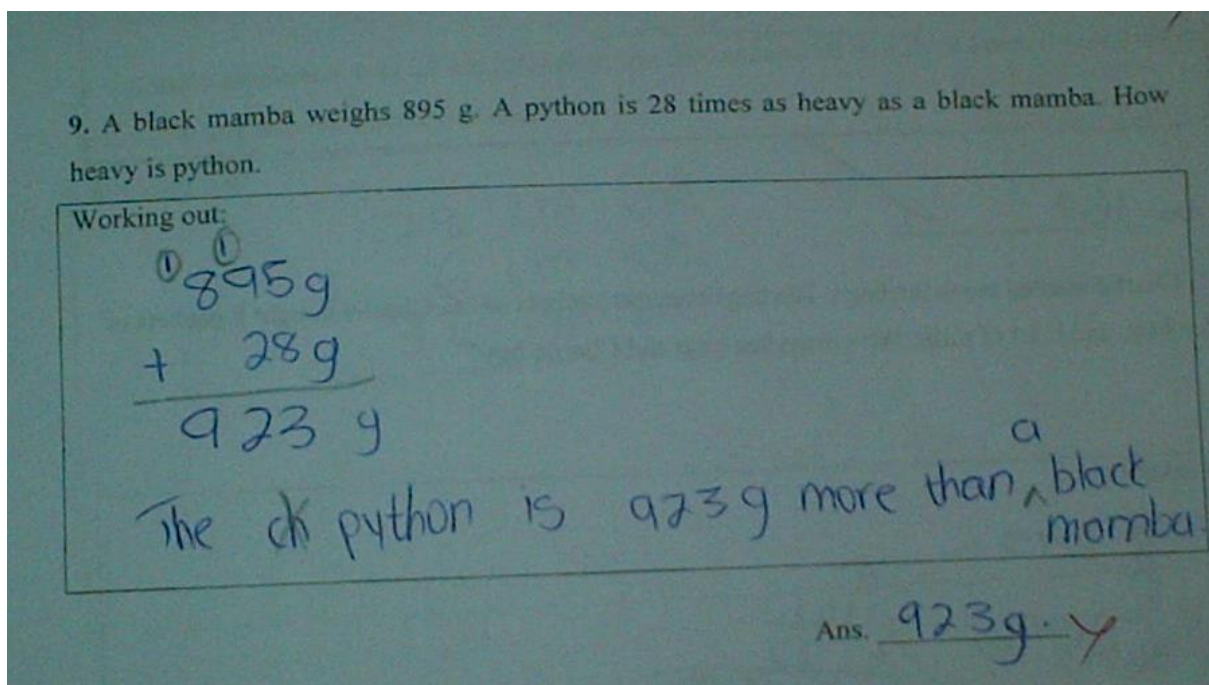 9. A black mamba weighs 895 g. A python is 28 times as heavy as a black mamba. How
heavy is python.
Working out:
1 1
895g
+ 28g
923 g
a
The python is 923g more than ^ black
mamba.
Ans. 923g.